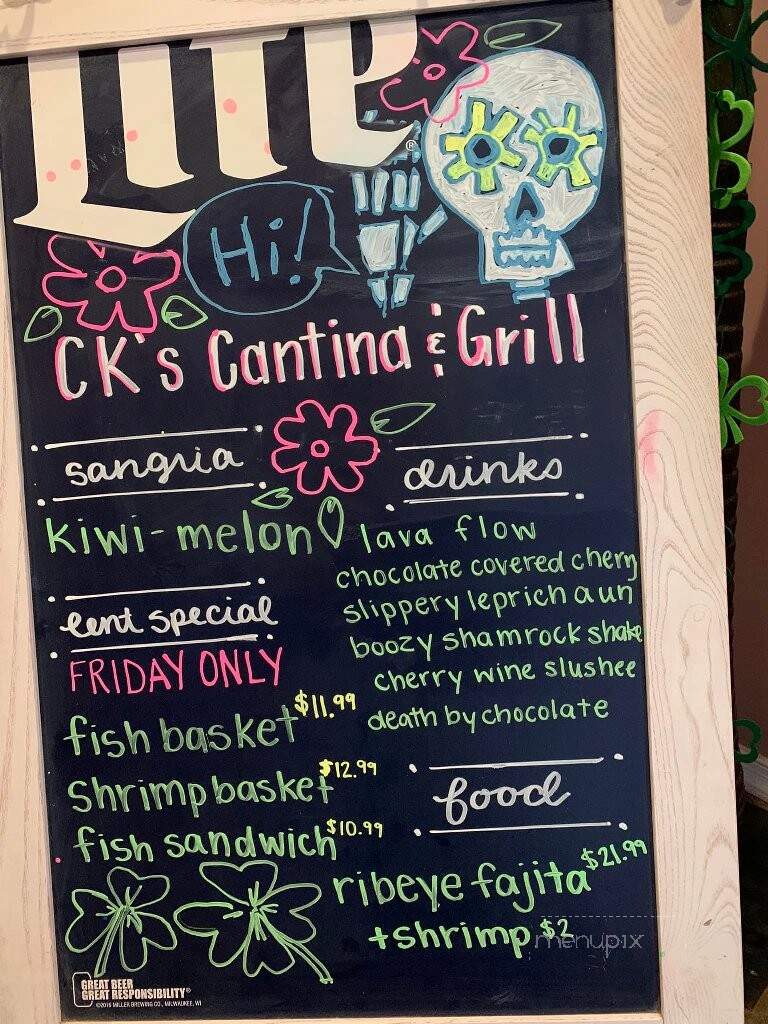 Lite
®
Hi!
CK's Cantina & Grill
sangria
kiwi-melon
lent special
FRIDAY ONLY
fish basket $11.99
shrimp basket $12.99
fish sandwich $10.99
drinks
lava flow
chocolate covered cherry
slippery leprichaun
boozy shamrock shake
cherry wine slushee
death by chocolate
food
ribeye fajita $21.99
+shrimp $2
menupix
GREAT BEER
GREAT RESPONSIBILITY®
©2016 MILLER BREWING CO., MILWAUKEE, WI